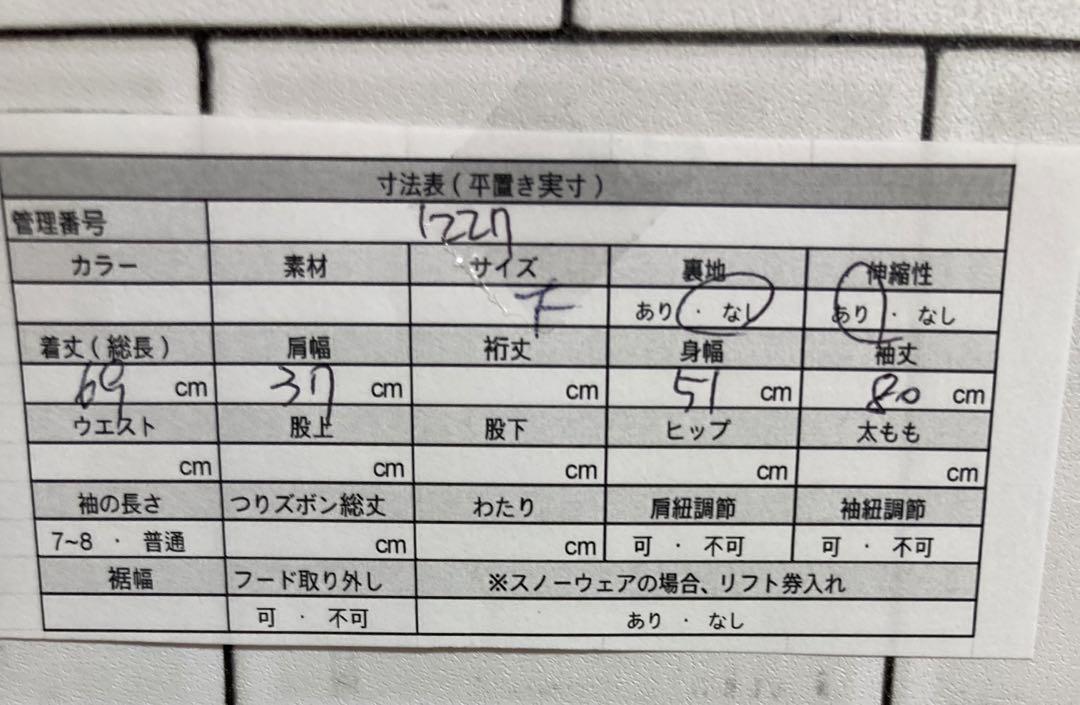 寸法表(平置き実寸)
管理番号 1227
カラー 素材 サイズ 裏地 伸縮性
あり ・ なし あり ・ なし
着丈(総長) 肩幅 裄丈 身幅 袖丈
69 cm 37 cm cm 51 cm 80 cm
ウエスト 股上 股下 ヒップ 太もも
cm cm cm cm cm
袖の長さ つりズボン総丈 わたり 肩紐調節 袖紐調節
7~8 ・ 普通 cm cm 可 ・ 不可 可 ・ 不可
裾幅 フード取り外し ※スノーウェアの場合、リフト券入れ
可 ・ 不可 あり ・ なし